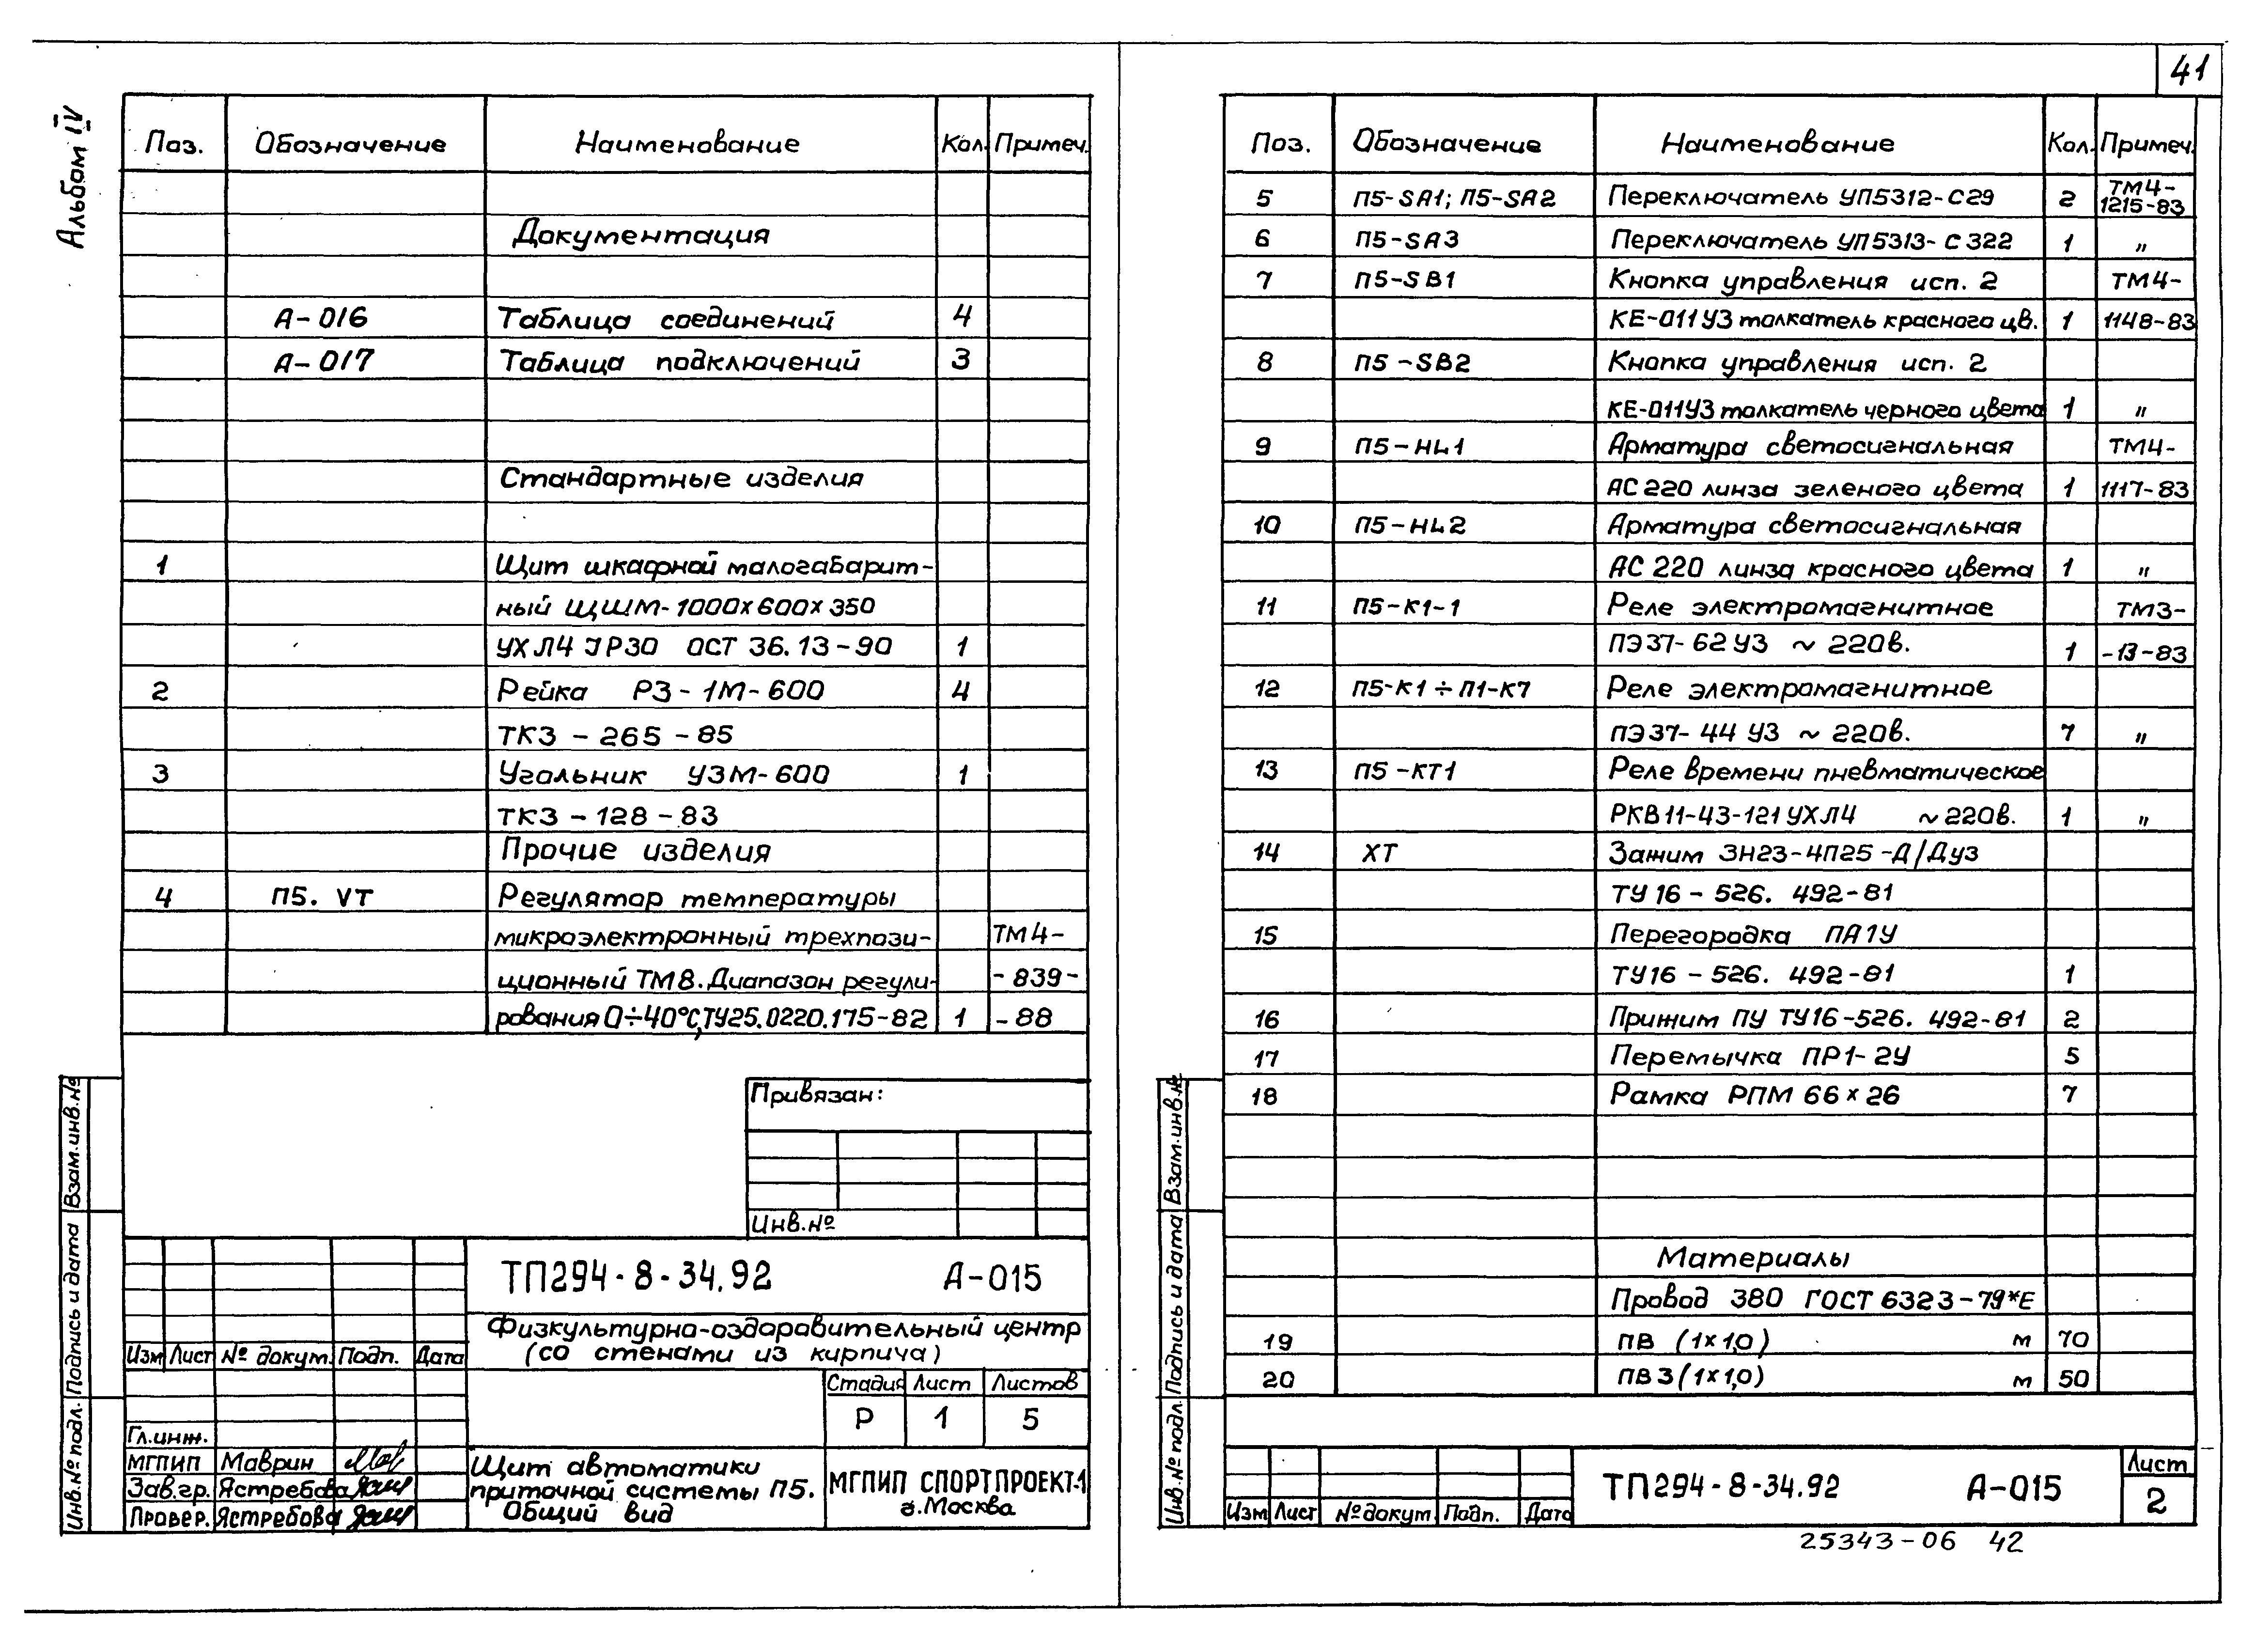 41
Альбом IV
Поз. Обозначение Наименование Кол. Примеч.
Документация
А-016 Таблица соединений 4
А-017 Таблица подключений 3
Стандартные изделия
1 Щит шкафной малогабарит-
ный ЩШМ-1000х600х350
УХЛ4 IP30 ОСТ 36.13-90 1
2 Рейка РЗ-1М-600 4
ТКЗ-265-85
3 Угольник УЗМ-600 1
ТКЗ-128-83
Прочие изделия
4 П5. VT Регулятор температуры
микроэлектронный трехпози- ТМ4-
ционный ТМ8. Диапазон регули- -839-
рования 0÷40°С, ТУ25.0220.175-82 1 -88
Привязан:
Инв.№
ТП294-8-34.92 А-015
Физкультурно-оздоровительный центр
(со стенами из кирпича)
Изм Лист № докум. Подп. Дата
Стадия Лист Листов
Р 1 5
Гл.инж.
МГПИП Маврин
Зав.гр. Ястребова
Провер. Ястребова
Щит автоматики
приточной системы П5.
Общий вид
МГПИП СПОРТПРОЕКТ-1
г.Москва
Взам.инв.№
Подпись и дата
Инв.№ подл.
Поз. Обозначение Наименование Кол. Примеч.
5 П5-SA1; П5-SA2 Переключатель УП5312-С29 2 ТМ4-
1215-83
6 П5-SA3 Переключатель УП5313-С322 1 "
7 П5-SB1 Кнопка управления исп. 2 ТМ4-
КЕ-011У3 толкатель красного цв. 1 1148-83
8 П5-SB2 Кнопка управления исп. 2
КЕ-011У3 толкатель черного цвета 1 "
9 П5-HL1 Арматура светосигнальная ТМ4-
АС 220 линза зеленого цвета 1 1117-83
10 П5-HL2 Арматура светосигнальная
АС 220 линза красного цвета 1 "
11 П5-К1-1 Реле электромагнитное ТМ3-
ПЭ37-62 У3 ~ 220в. 1 -13-83
12 П5-К1÷П1-К7 Реле электромагнитное
ПЭ37-44 У3 ~ 220в. 7 "
13 П5-КТ1 Реле времени пневматическое
РКВ11-43-121УХЛ4 ~220в. 1 "
14 ХТ Зажим ЗН23-4П25-Д/Ду3
ТУ16-526.492-81
15 Перегородка ПА1У
ТУ16-526.492-81 1
16 Прижим ПУ ТУ16-526.492-81 2
17 Перемычка ПР1-2У 5
18 Рамка РПМ 66х26 7
Материалы
Провод 380 ГОСТ 6323-79*Е
19 ПВ (1х1,0) м 70
20 ПВ3 (1х1,0) м 50
Взам.инв.№
Подпись и дата
Инв.№ подл.
Изм Лист № докум. Подп. Дата
ТП294-8-34.92 А-015
Лист
2
25343-06 42